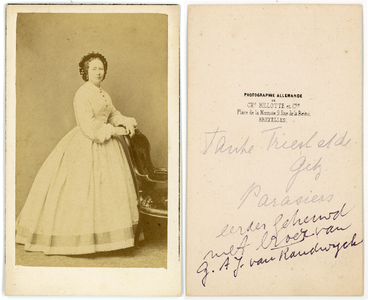 PHOTOGRAPHIE ALLEMANDE
DE
CH. MELOTTE et Cie
Place de la Monnaie, 9, Rue de la Reine
BRUXELLES
Tante
Parasiers
eerder gehuwd
met broer van
G. A. J. van Randwyck